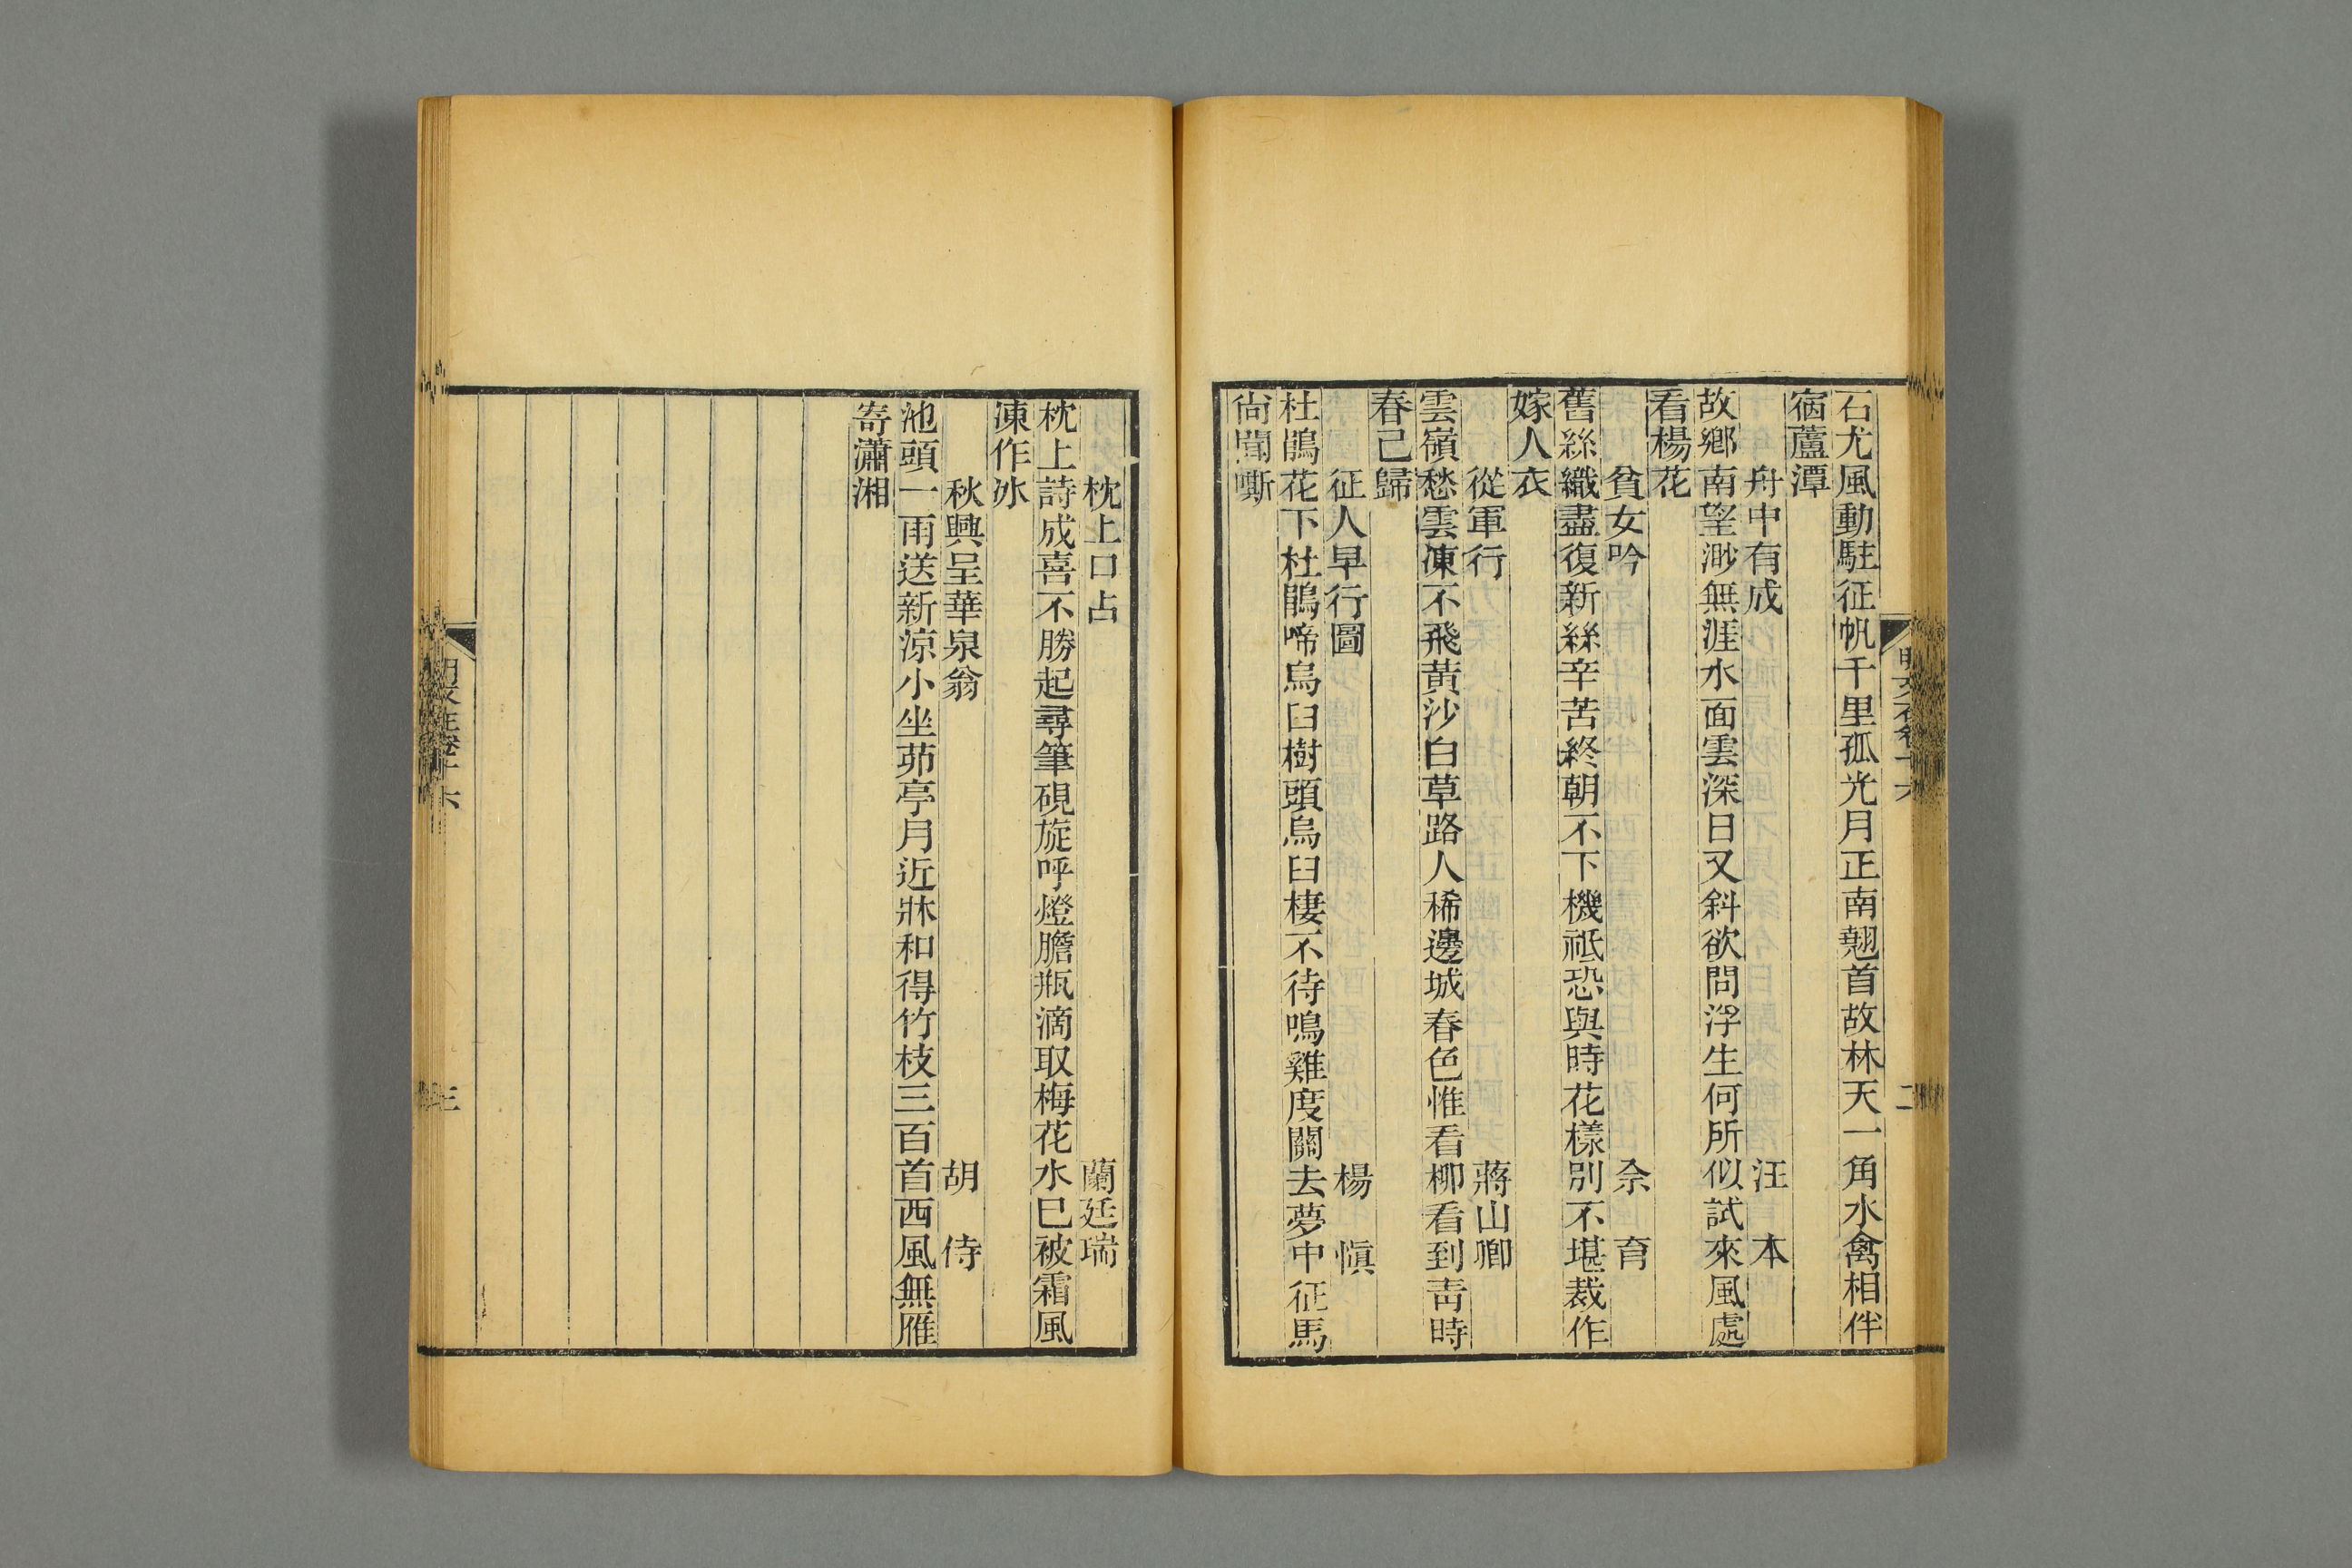 石尤風動駐征帆千里孤光月正南翹首故林天一角水禽相伴
宿蘆潭
舟中有成 汪本
故鄉南望渺無涯水面雲深日又斜欲問浮生何所似試來風處
看楊花
貧女吟 佘育
舊絲織盡復新絲辛苦終朝不下機祗恐與時花樣別不堪裁作
嫁人衣
從軍行 蔣山卿
雲嶺愁雲凍不飛黃沙白草路人稀邊城春色惟看柳看到靑時
春已歸
征人早行圖 楊愼
杜鵑花下杜鵑啼烏臼樹頭烏臼棲不待鳴雞度關去夢中征馬
尙聞嘶
枕上口占 蘭廷瑞
枕上詩成喜不勝起尋筆硯旋呼燈膽瓶滴取梅花水巳被霜風
凍作冰
秋興呈華泉翁 胡侍
池頭一雨送新凉小坐茆亭月近牀和得竹枝三百首西風無雁
寄瀟湘
三